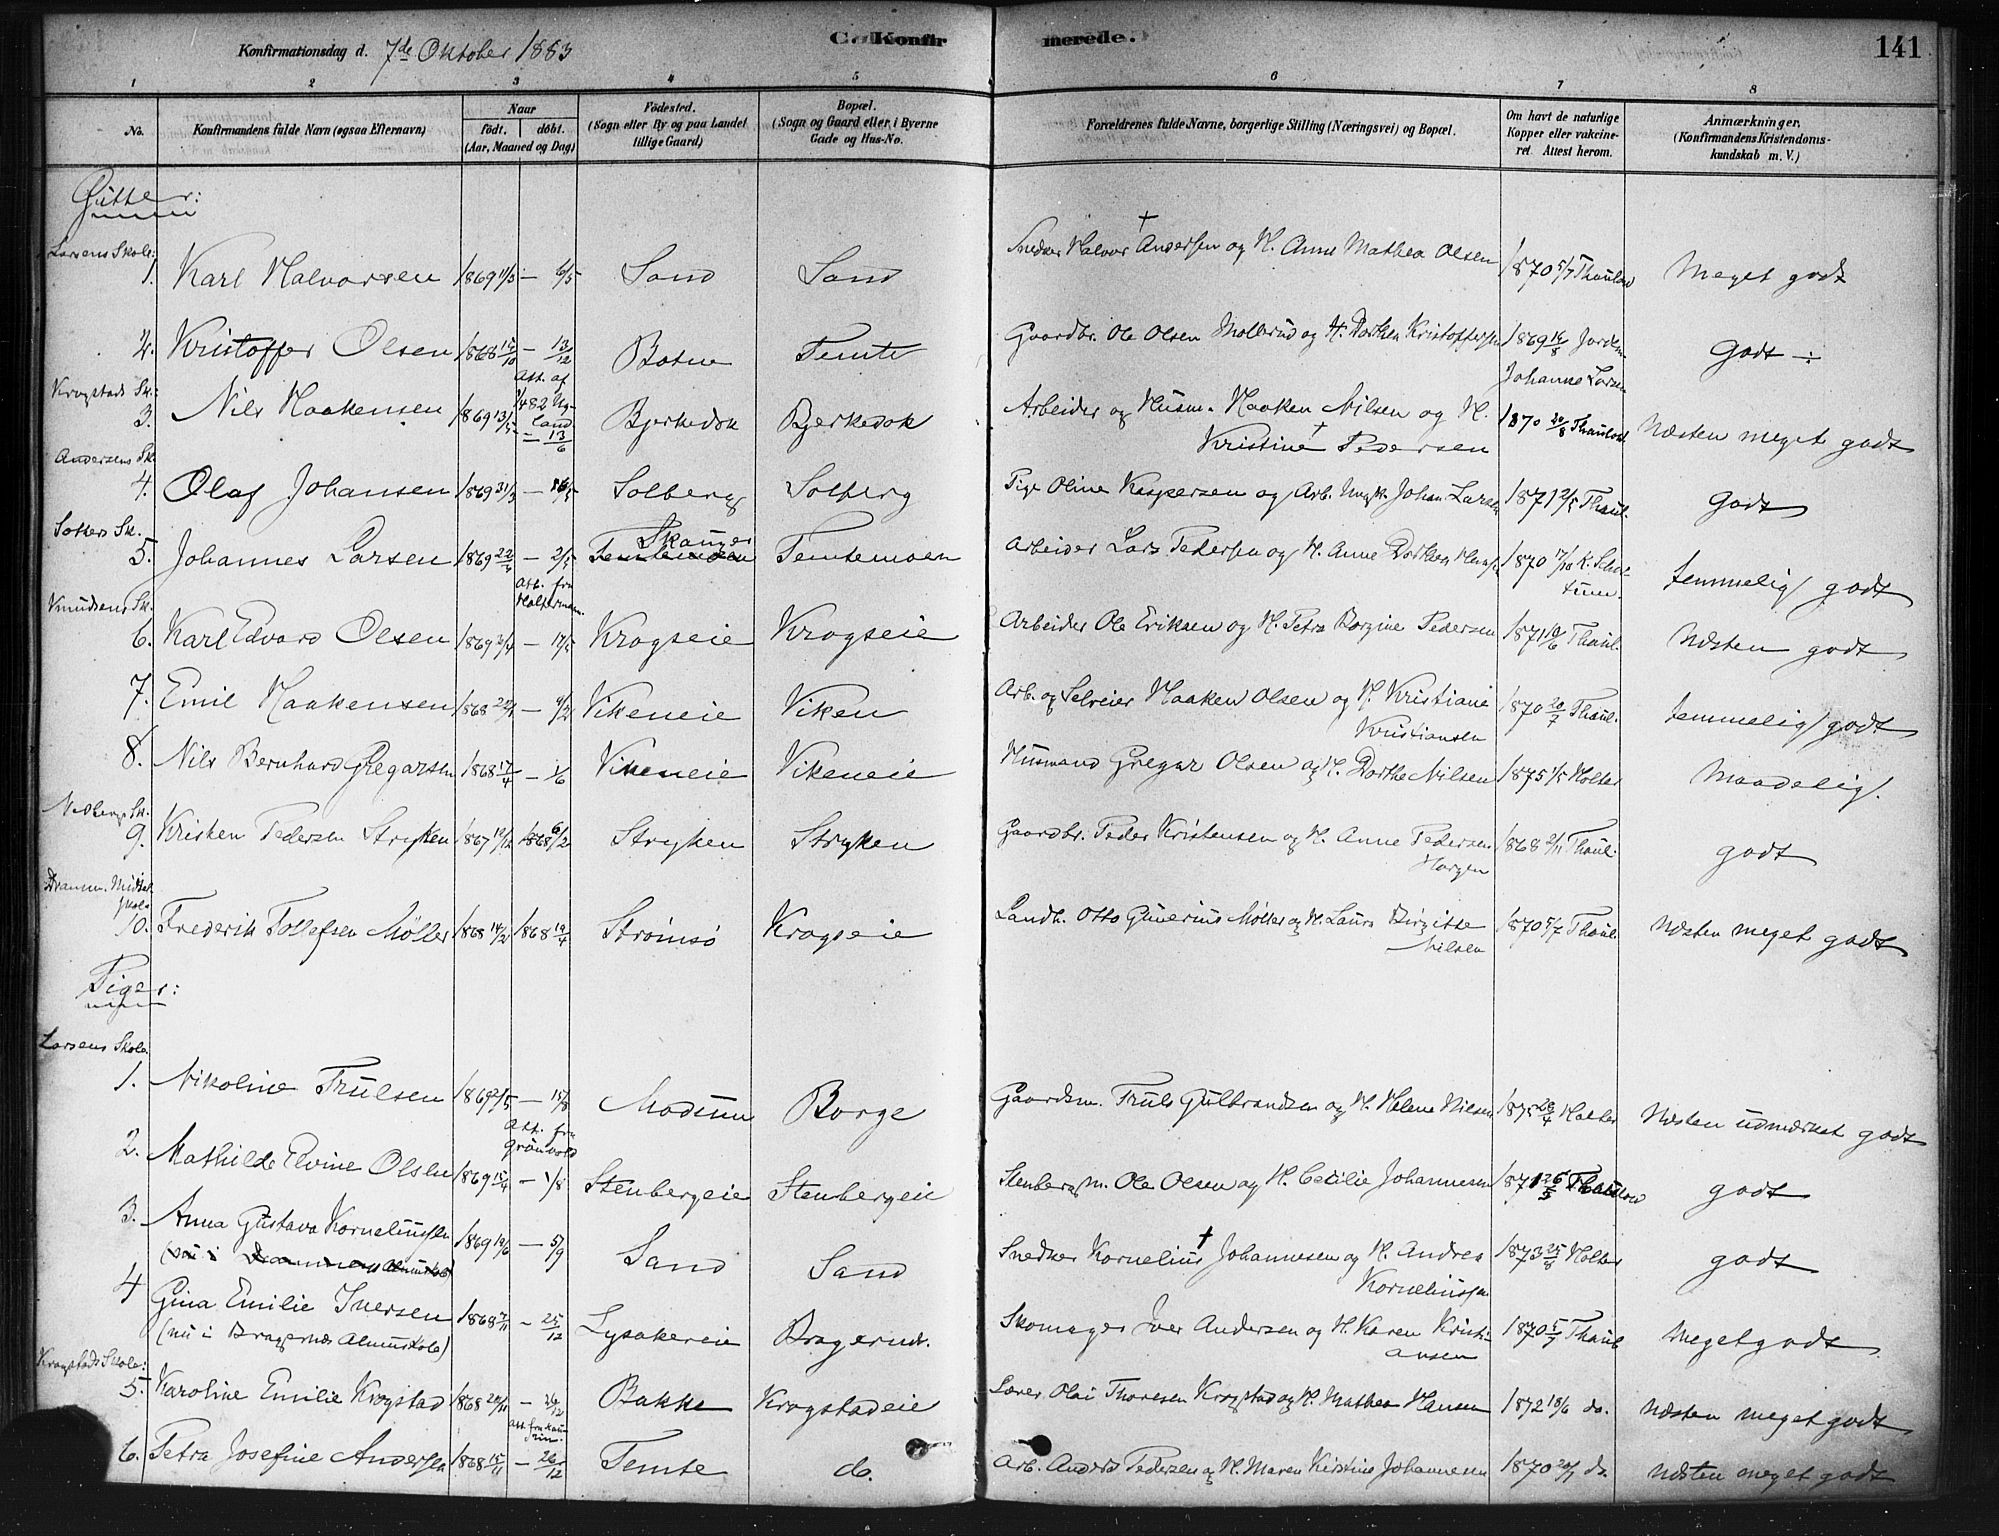 Konfirmationsdag d. 7de Oktober 1883
Konfir merede.
141
1 2 3 4 5 6 7 8
No.
Konfirmandens fulde Navn (ogsaa Efternavn)
Naar
født. døbt.
(Aar, Maaned og Dag)
Fødested.
(Sogn eller By og paa Landet
tillige Gaard)
Bopæl.
(Sogn og Gaard eller i Byerne
Gade og Hus-No.
Forældrenes fulde Navne, borgerlige Stilling (Næringsvei) og Bopæl.
Om havt de naturlige
Kopper eller vakcine-
ret. Attest herom.
Anmærkninger,
(Konfirmandens Kristendoms-
kundskab m. V.)
Gutter:
Larsens Skole:
1. Karl Halvorsen 1869 11/3 — 6/5 Sand Sand Snedker Halvor † Andersen og H. Anne Mathea Olsen 1870 5/7 Thaulow Meget godt
2. Kristoffer Olsen 1868 15/10 — 13/12 Botne Temte Gaardbr. Ole Olsen Mollerud og H. Dorthea Kristoffersen 1869 14/8 Jordm. Johanne Larsen Godt ÷
Att. af
Krogstads Sk.:
3. Nils Haakensen 1869 13/5 — 13/6 Bjerkedok Bjerkedok Arbeider og Husm. Haaken Nilsen og H. 1870 24/8 Thaulow Næsten meget godt
Kristine † Pedersen
Andersens Sk.
4. Olaf Johansen 1869 31/3 — 16/5 Solberg Solberg Pige Oline Kaspersen og Arb. Ungk. Johan Larsen 1871 2/5 Thaul. Godt
Solberg Sk.
5. Johannes Larsen 1869 22/4 — 2/5 Skauger Temtemoen Temtemoen Arbeider Lars Pedersen og H. Anne Dorthea Hansen 1870 17/10 temmelig godt
Att. fra
Holtermann.
Knudsens Sk.
6. Karl Edvard Olsen 1869 2/4 — 17/5 Krogseie Krogseie Arbeider Ole Eriksen og H. Petra Borgine Pedersen 1871 10/6 Thaul. Næsten godt
7. Emil Haakensen 1868 22/1 — 9/2 Vikeneie Viken Arb. og Selveier Haaken Olsen og H. Kristiane 1870 20/7 Thaul. temmelig godt
Kristiansen
8. Nils Bernhard Gregarsen 1868 17/4 — 1/6 Vikeneie Vikeneie Husmand Gregar Olsen og H. Dorthe Nilsen 1875 1/5 Holter Maadelig.
Nedbergs Sk.
9. Kristen Pedersen Stryken 1867 19/12 1868 6/2 Stryken Stryken Gaardbr. Peder Kristensen og H. Anne Pedersen 1868 2/11 Thaul. godt
Horgen
Dramm. Middel
skole
10. Frederik Tollefsen Møller 1868 14/2 1868 19/4 Strømsø Krogseie Landh. Otto Gunerius Møller og H. Laura Birgitte 1870 5/7 Thaul. Næsten meget godt
Nilsen
Piger:
Larsens Skole.
1. Nikoline Trulsen 1869 2/5 — 15/8 Modum Borge Gaardsm. Truls Gulbrandsen og H. Helene Nilsen 1875 28/4 Holter Næsten udmærket godt
Att. fra
Grønvold
2. Mathilde Elvine Olsen 1869 15/4 — 1/8 Stenbergeie Stenbergeie Stenbergm. Ole Olsen og H. Cecilie Johannesen 1871 26/5 Thaulow godt
3. Anna Gustava Korneliussen 1869 19/6 — 5/9 Sand Sand Snedker Kornelius † Johannesen og H. Andrea 1873 25/8 Holter godt
(nu i Drammens Almueskole) Korneliussen
4 Gina Emilie Iversen 1868 7/11 — 25/12 Lysakereie Bragernæs. Skomager Iver Andersen og H. Karen Kristi- 1870 5/7 Thaul Meget godt
(nu i Bragernæs Almueskole) ansen
Krogstads Skole:
5. Karoline Emilie Krogstad 1868 20/11 — 26/12 Bakke Krogstadeie Lærer Olai Thoresen Krogstad og H. Mathea Hansen 1872 18/6 do. Næsten meget godt
6. Petra Josefine Andersen 1868 15/11 — 26/12 Temte do. Arb. Anders Pedersen og H. Maren Kirstine Johannesen 1870 20/7 do. Næsten meget godt